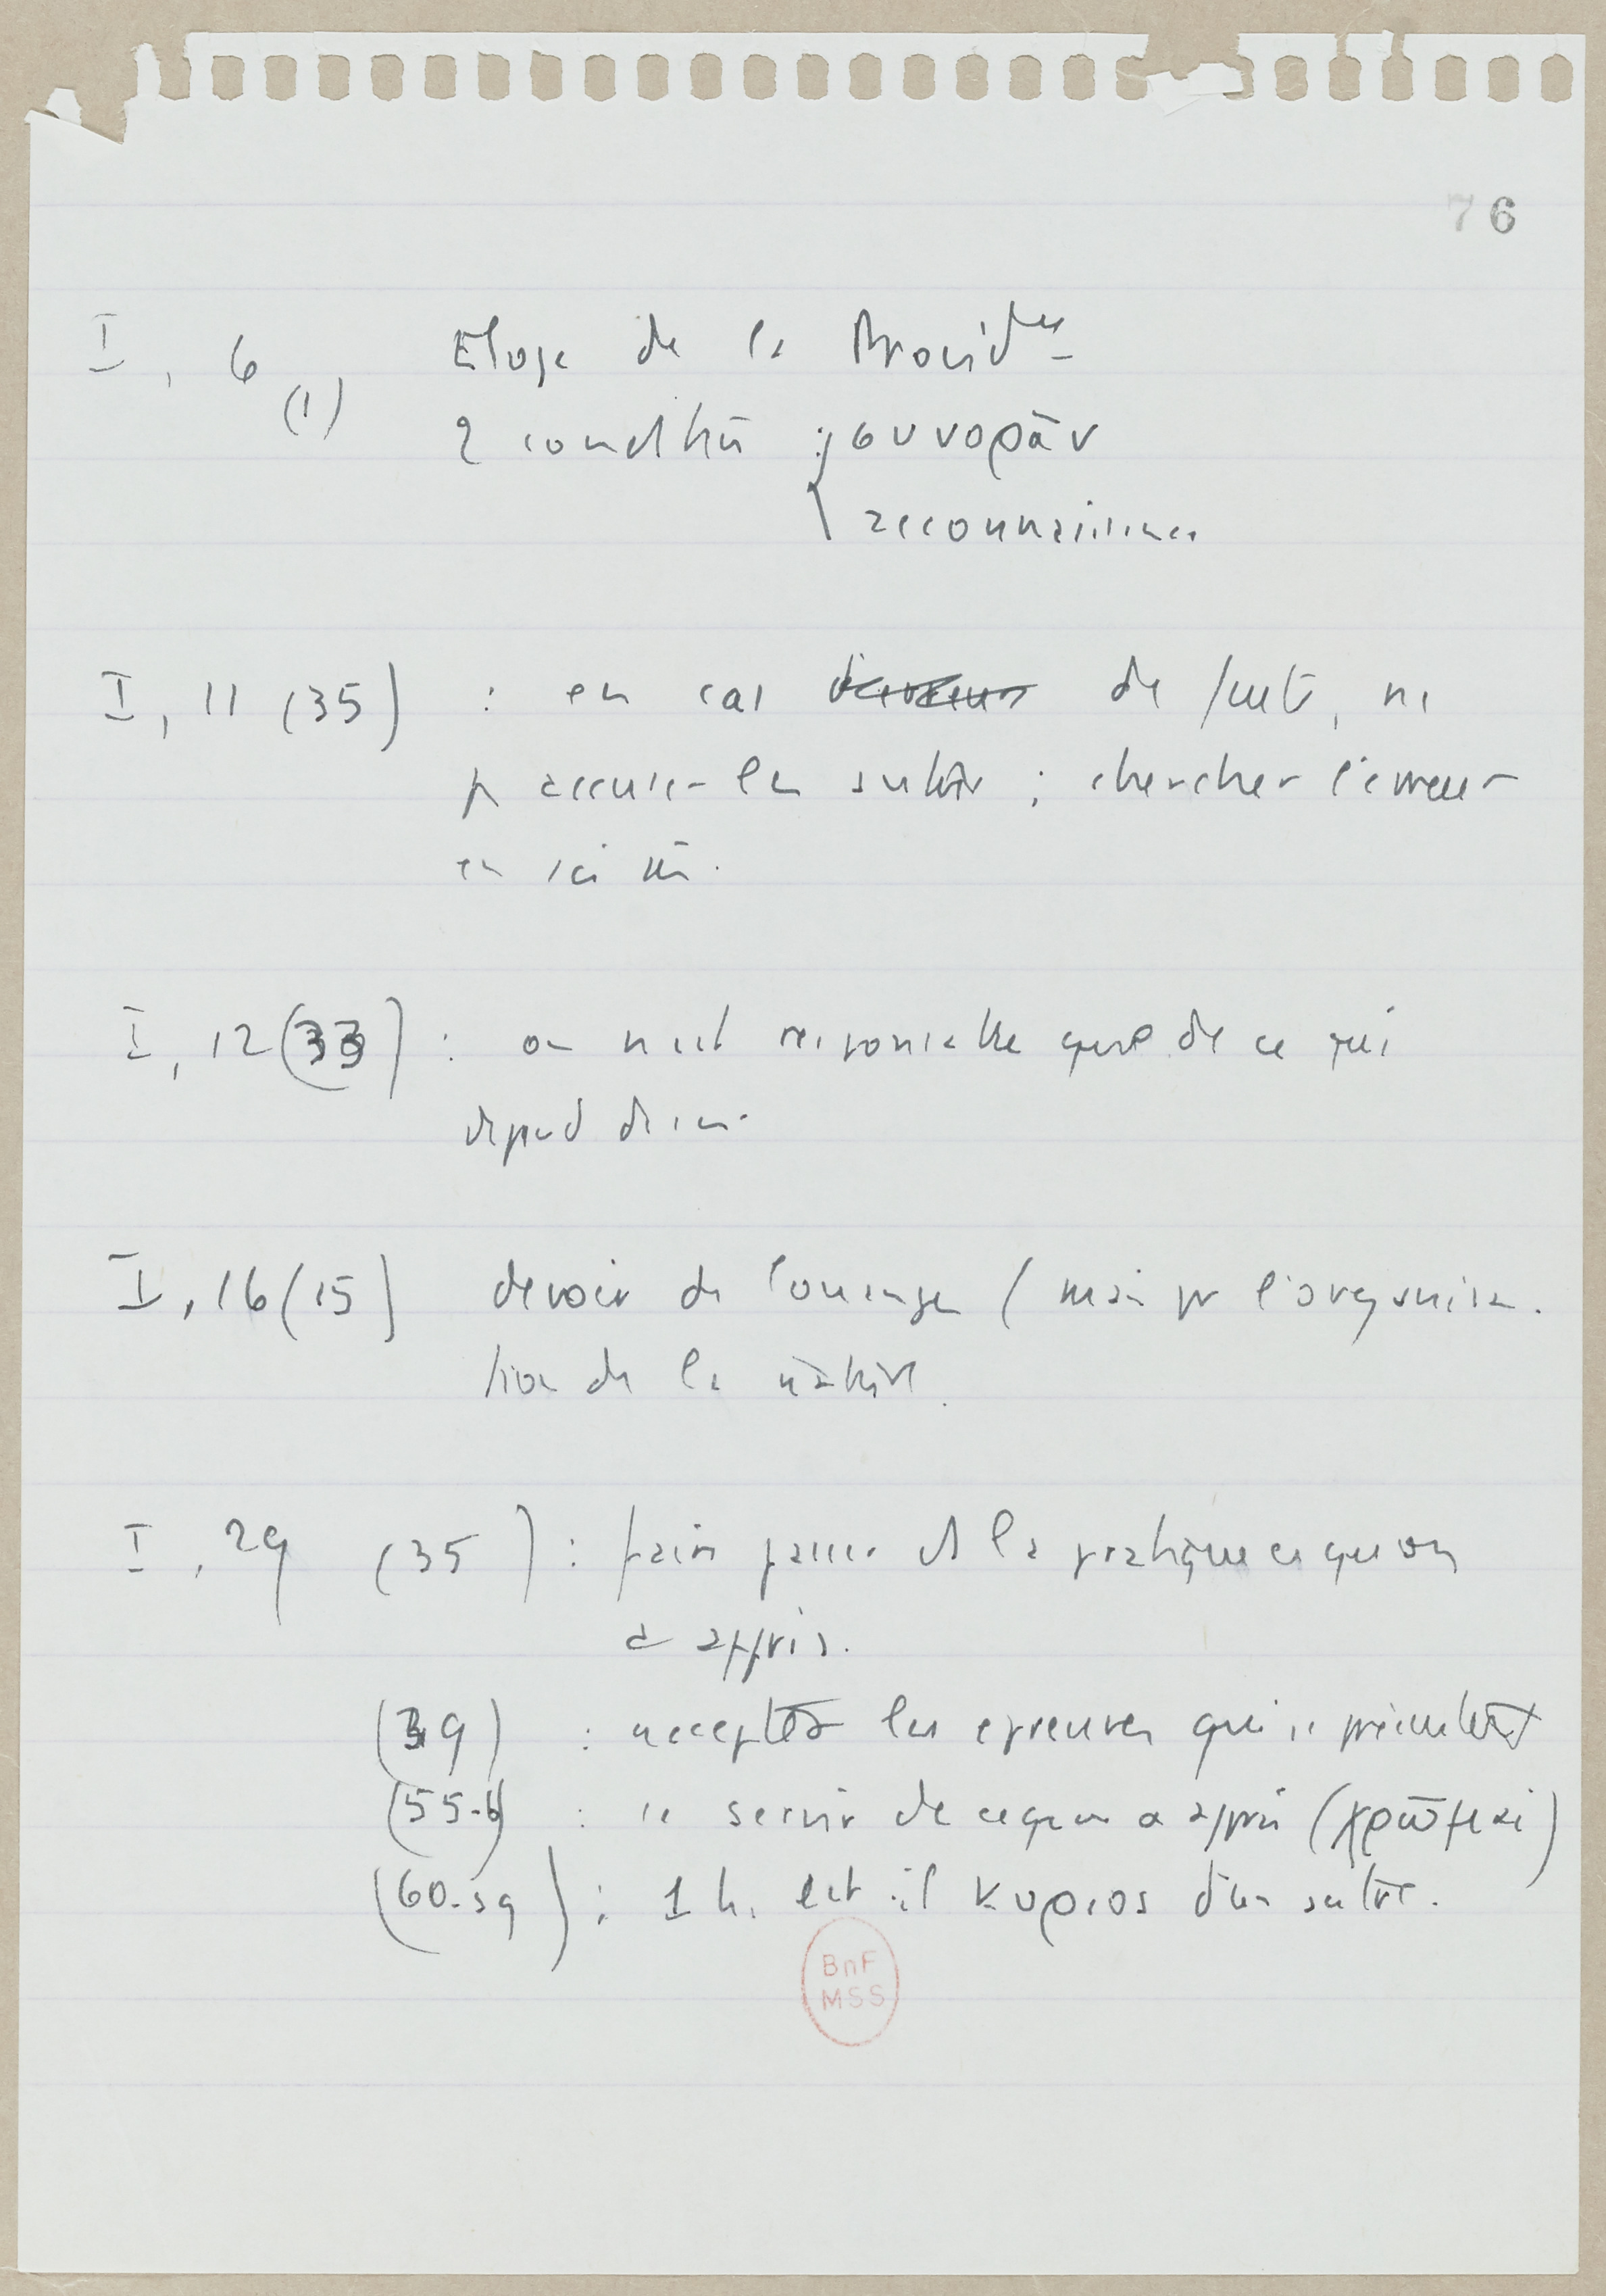 76
I, 6 (1) Eloge de la Provid^ce
2 conditiõ : συνορᾶν
reconnaissance
I, 11 (35) : en cas de faute, ne
p accuser les autres ; chercher l'erreur
en soi m̃.
I, 12 (33) : on n'est responsable que de ce qui
depend de soi.
I, 16 (15) devoir de louange (mais pr l'organisa-
tion de la nature.
I, 29 (35) : faire passer ds la pratique ce qu'on
a appris.
(39) : accepter les epreuves qui se présentent
(55-6) : se servir de ce qu'on a appris (χρῶμαι)
(60-sq) : 1 h. est-il κυριος d'un autre.
BnF
MSS